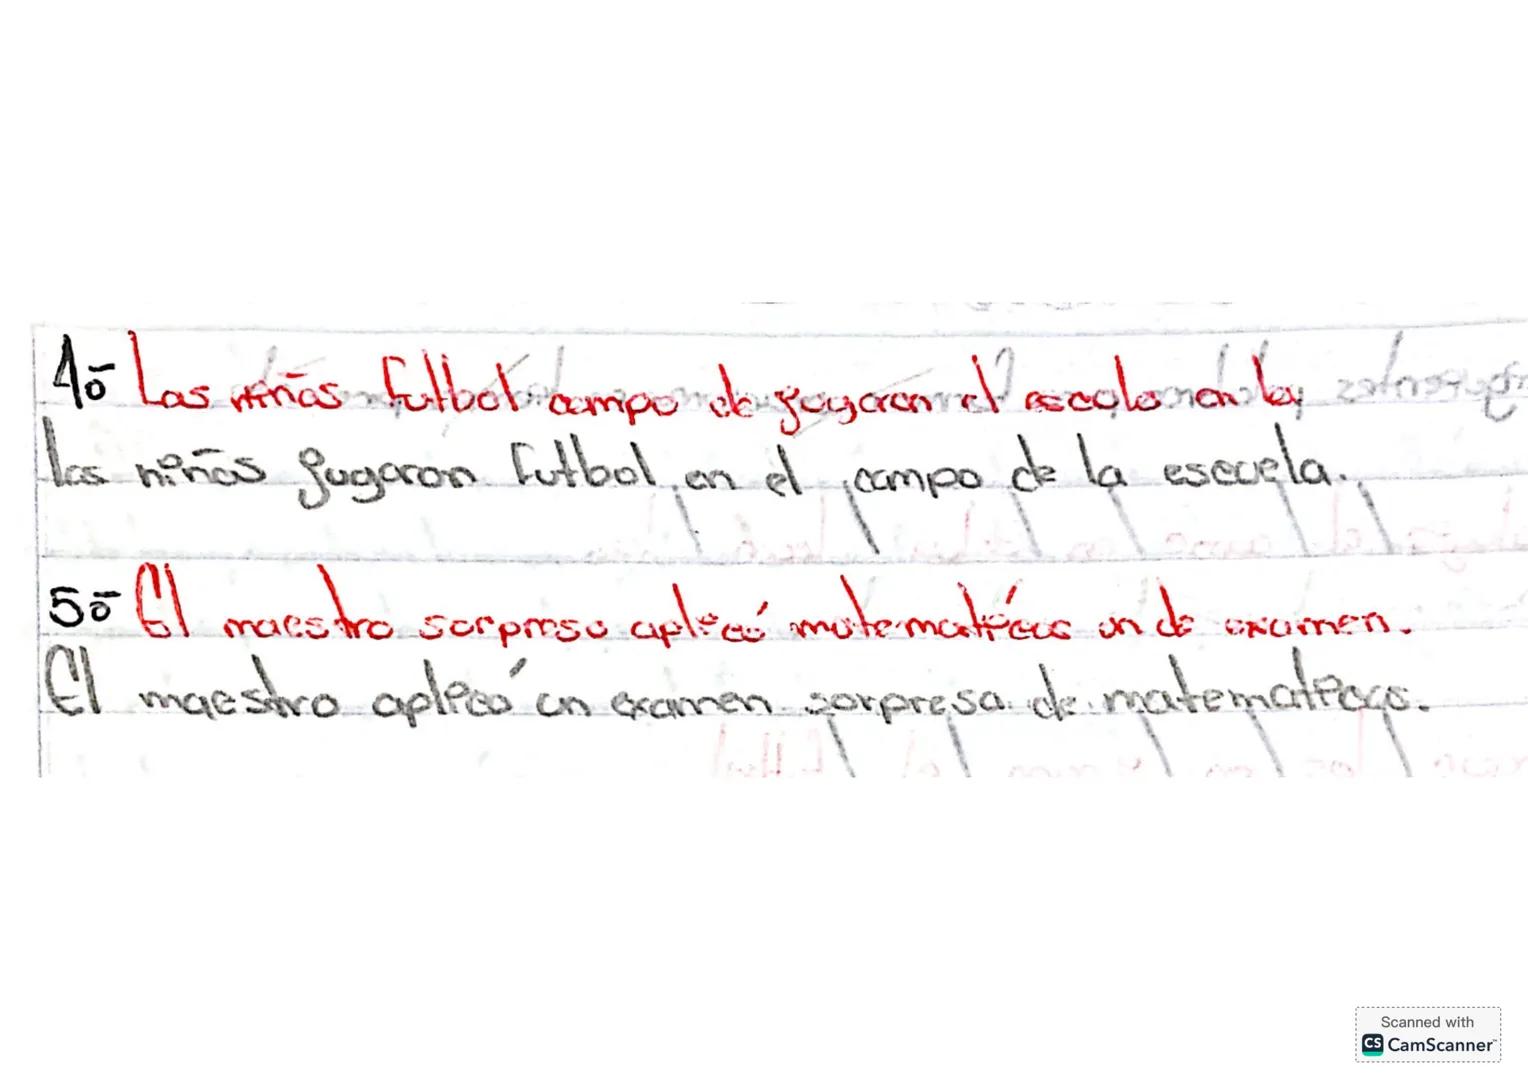 4º Las niñas futbol campo de jugaron el escuela en la
las niñas jugaron futbol en el campo de la escuela.
5º El maestro sorpresa aplicó matemáticas un de examen.
El maestro aplicó un examen sorpresa de matematicas.
Scanned with
CS CamScanner